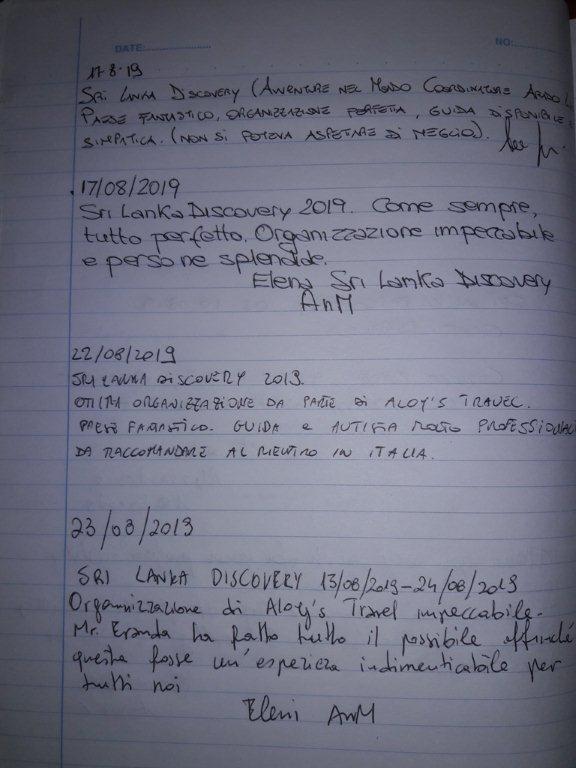 DATE:
NO:
17-8-19
SRI LANKA DISCOVERY (AVVENTURE NEL MONDO COORDINATORE
PAESE FANTASTICO, ORGANIZZAZIONE PERFETTA, GUIDA DISPONIBILE
SIMPATICA. (NON SI POTEVA ASPETARE DI MEGLIO).
17/08/2019
Sri Lanka Discovery 2019. Come sempre,
tutto perfetto. Organizzazione impeccabile
e persone splendide.
Elena Sri Lanka Discovery
AnM
22/08/2019
SRI LANKA DISCOVERY 2019.
OTTIMA ORGANIZZAZIONE DA PARTE DI ALOY'S TRAVEL.
PAESE FANTASTICO. GUIDA e AUTISTA MOLTO PROFESSIONALI
DA RACCOMANDARE AL RIENTRO IN ITALIA.
23/08/2019
SRI LANKA DISCOVERY 13/08/2019-24/08/2019
Organizzazione di Aloy's Travel impeccabile.
Mr. Eranda ha fatto tutto il possibile affinché
questa fosse un'esperieza indimenticabile per
tutti noi
Eleni AnM